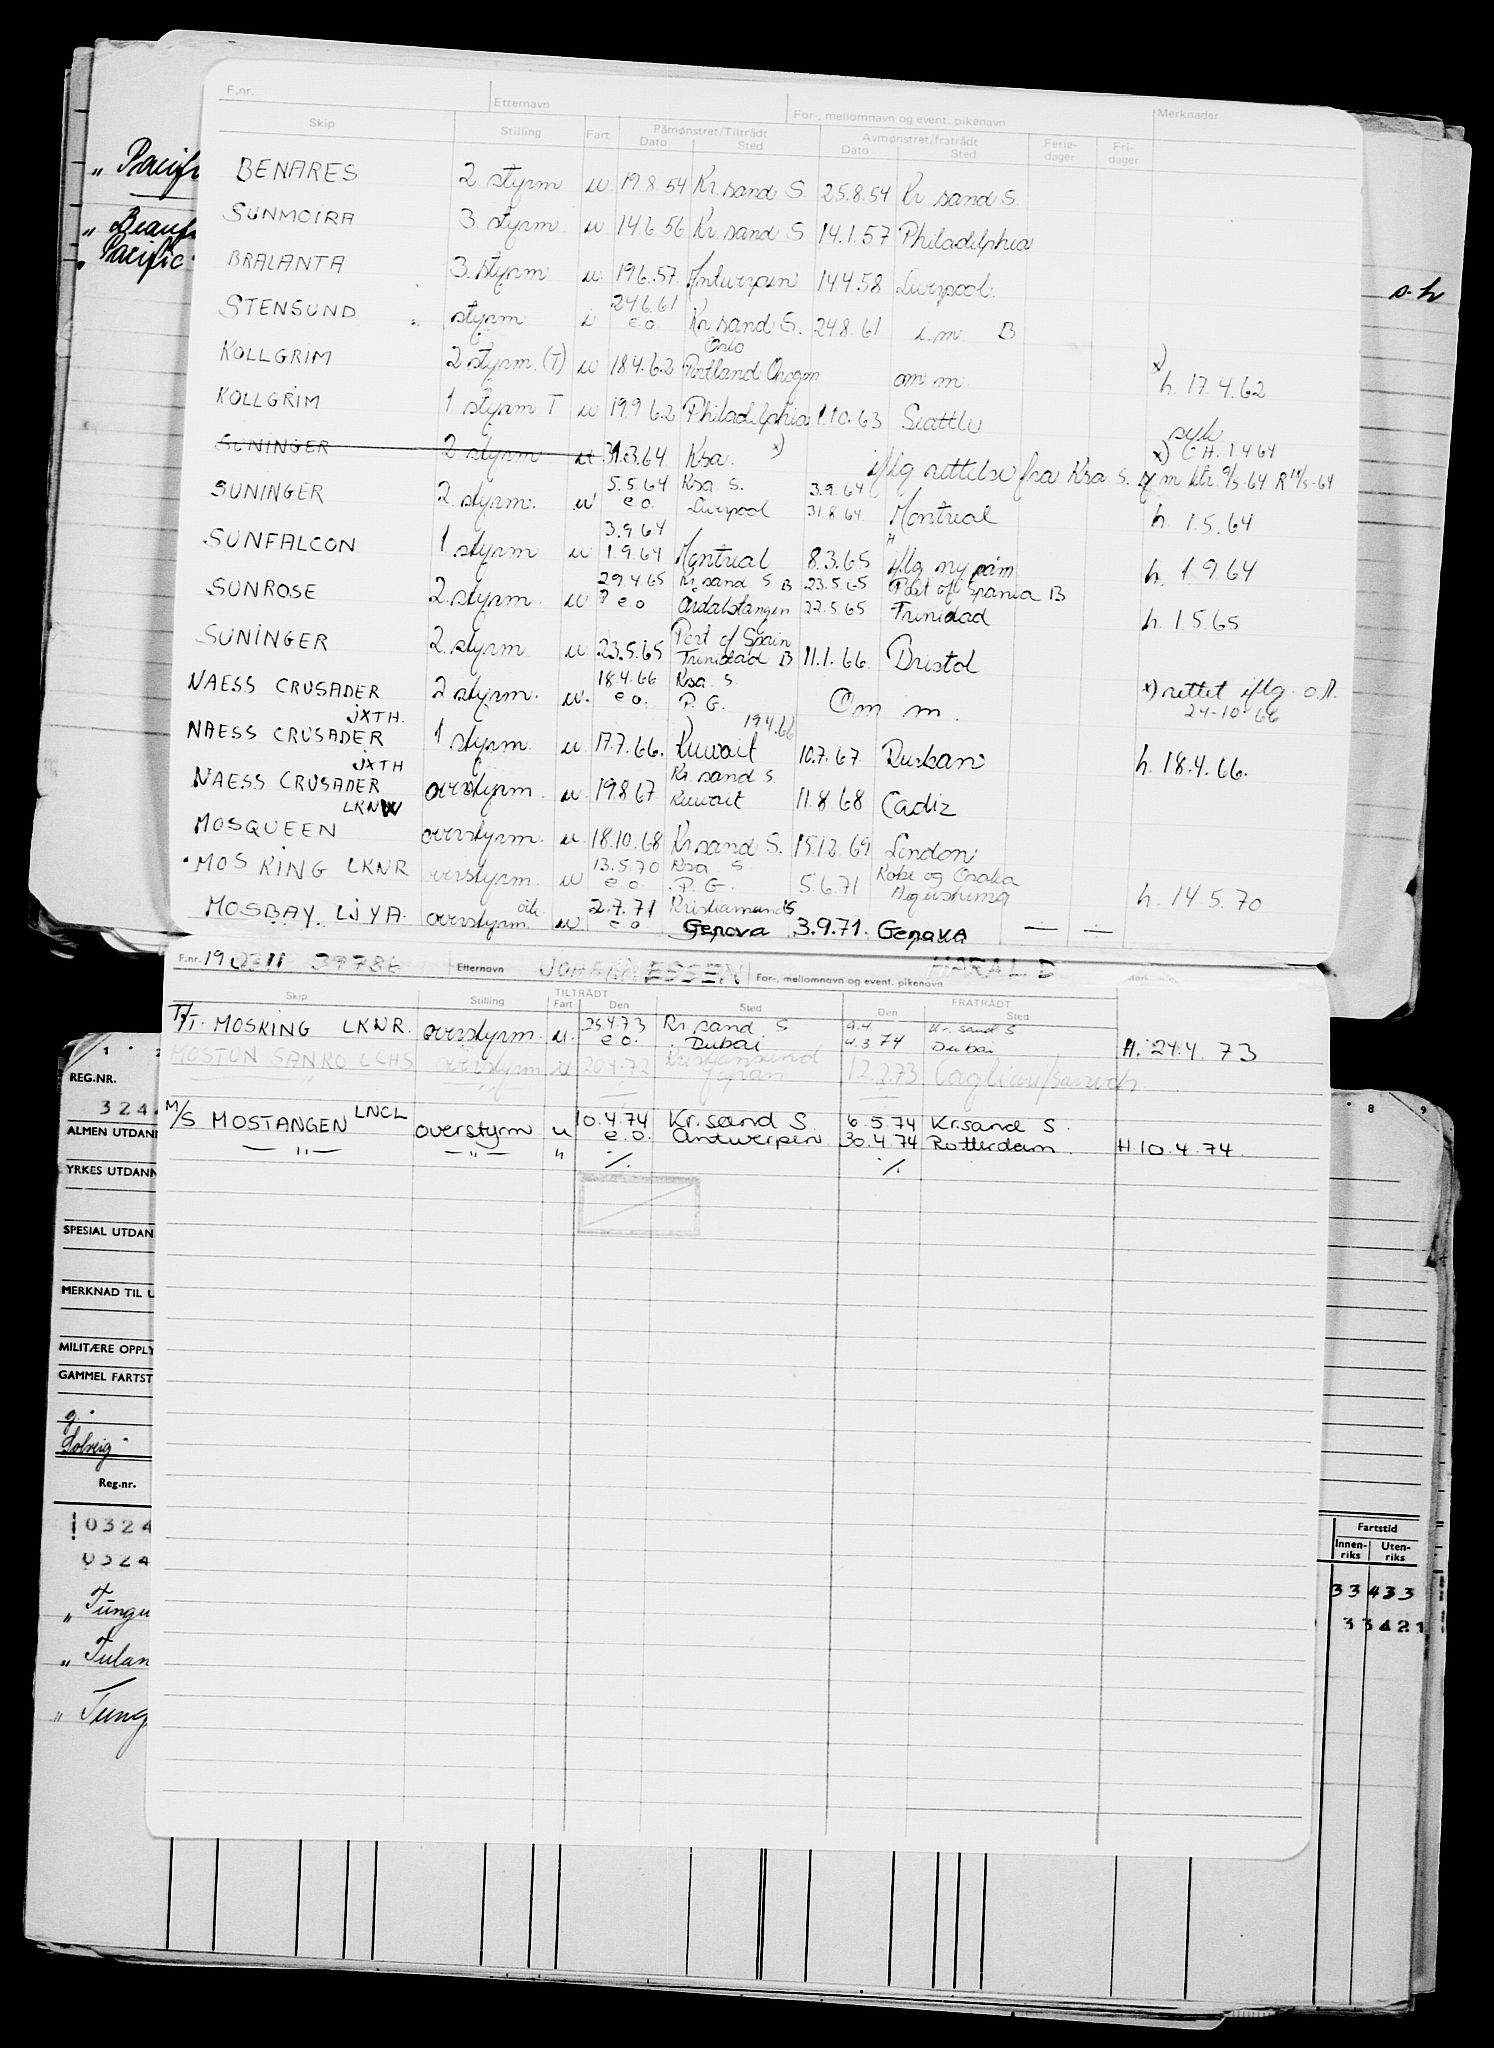 F.nr. Etternavn For-, mellomnavn og event. pikenavn Merknader
Skip Stilling Fart Påmønstret/Tiltrådt Avmønstret/fratrådt Ferie- Fri-
Dato Sted Dato Sted dager dager
BENARES 2 styrm u 19.8.54 Kr.sand S. 25.8.54 Kr sand S.
SUNMOIRA 3. styrm u 14.6.56 Kr sand S 14.1.57 Philadelphia
BRALANTA 3. styrm u 19.6.57 Antwerpen 14.4.58 Liverpool.
24.6.61
STENSUND styrm i e.o. Kr sand S. 24.8.61 i.m B
Oslo
KOLLGRIM 2 styrm. (T) u 18.4.62 Portland Oregon om m x) h. 17.4.62
KOLLGRIM 1 styrm T u 19.9.62 Philadelphia 1.10.63 Seattle
syk
SUNINGER 2 styrm ut 31.3.64 Ksa. x) iflg rettelse fra Ksa S.
5.5.64 Ksa S. 3.9.64
SUNINGER 2. styrm. u e.o. Liverpool 31.8.64 Montreal h. 1.5.64
3.9.64
SUNFALCON 1 styrm u 1.9.64 Montreal 8.3.65 iflg ny påm h. 1 9 64
29.4.65 Kr.sand S B 23.5.65 Port of Spania B
SUNROSE 2. styrm. u e.o Årdalstangen 22.5.65 Trinidad h. 1.5.65
Port of Spain
SUNINGER 2. styrm u 23.5.65 Trinidad B 11.1.66 Bristol
18.4.66 Ksa S.
NAESS CRUSADER 2 styrm. u. e.o. P.G. Om m. x) rettet iflg. o.A.
JXTH. 19.4.66 24-10-66
NAESS CRUSADER 1 styrm. u. 17.7.66. Kuwait 10.7.67 Durban h. 18.4.66.
JXTH Kr sand S.
NAESS CRUSADER overstyrm. u. 19.8.67 Kuwait 11.8.68 Cadiz
LKNW
MOSQUEEN overstyrm. u. 18.10.68 Kr.sand S. 15.12.69 London
13.5.70 Ksa S Kobe og Osaka
MOS KING LKNR overstyrm. u e.o. P.G. 5.6.71 h. 14 5.70
2.7.71 Kristiansand S
MOSBAY LJYA. overstyrm. u e.o Genova 3.9.71. Genova — —
F.nr. 19 Etternavn JOHANNESSEN For-, mellomnavn og event. pikenavn HARALD
Skip Stilling TILTRÅDT FRATRÅDT
Fart Den Sted Den Sted
25.4.73 Kr.sand S 9.4. Kr.sand S
T/T. MOSKING LKNR. overstyrm. u. e.o. Dubai 4.3 74 Dubai H. 24.4.73
MOSTUN SANKO LCHS overstyrm u 20.4.72 Kristiansund Japan 12.2.73
10.4.74 Kr.sand S. 6.5.74 Kr.sand S.
M/S MOSTANGEN LNCL overstyrm u e.o. Antwerpen 30.4.74 Rotterdam. H.10.4.74.
— " — — " — " ·/. ·/.
" Pacific
s.h
REG.NR.
324
ALMEN UTDAN
YRKES UTDANN
SPESIAL UTDAN
MERKNAD TIL U
MILITÆRE OPPLY
GAMMEL FARTST
Solveig
Reg.nr. Fartstid
Innen- Uten-
riks riks
0324 33 433
0324 33421
" Tulan
" Tung